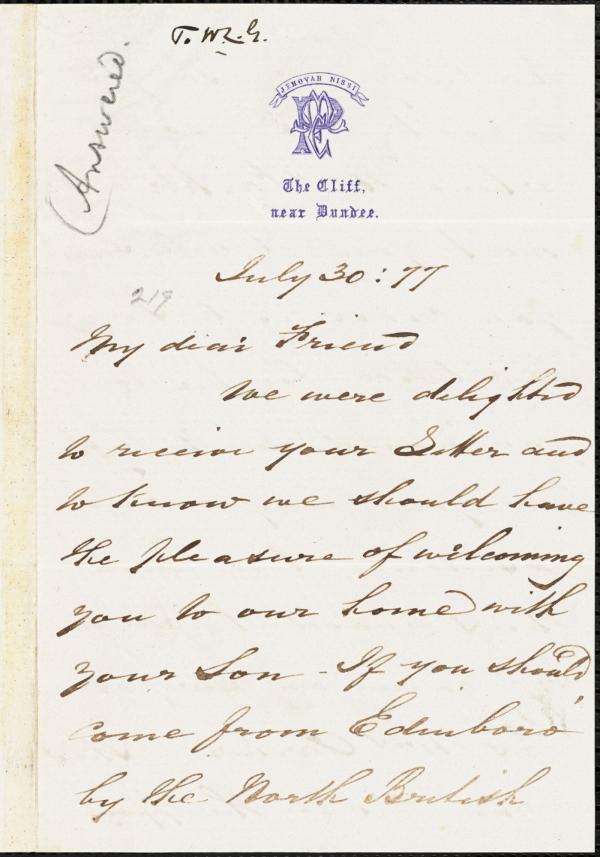 T. W. L. G.
(Answered.
JEHOVAH NISSI
The Cliff,
near Dundee.
July 30 : 77
219
My dear Friend
We were delighted
to receive your Letter and
to know we should have
the pleasure of welcoming
you to our home with
your Son - If you should
come from Edinboro'
by the North British